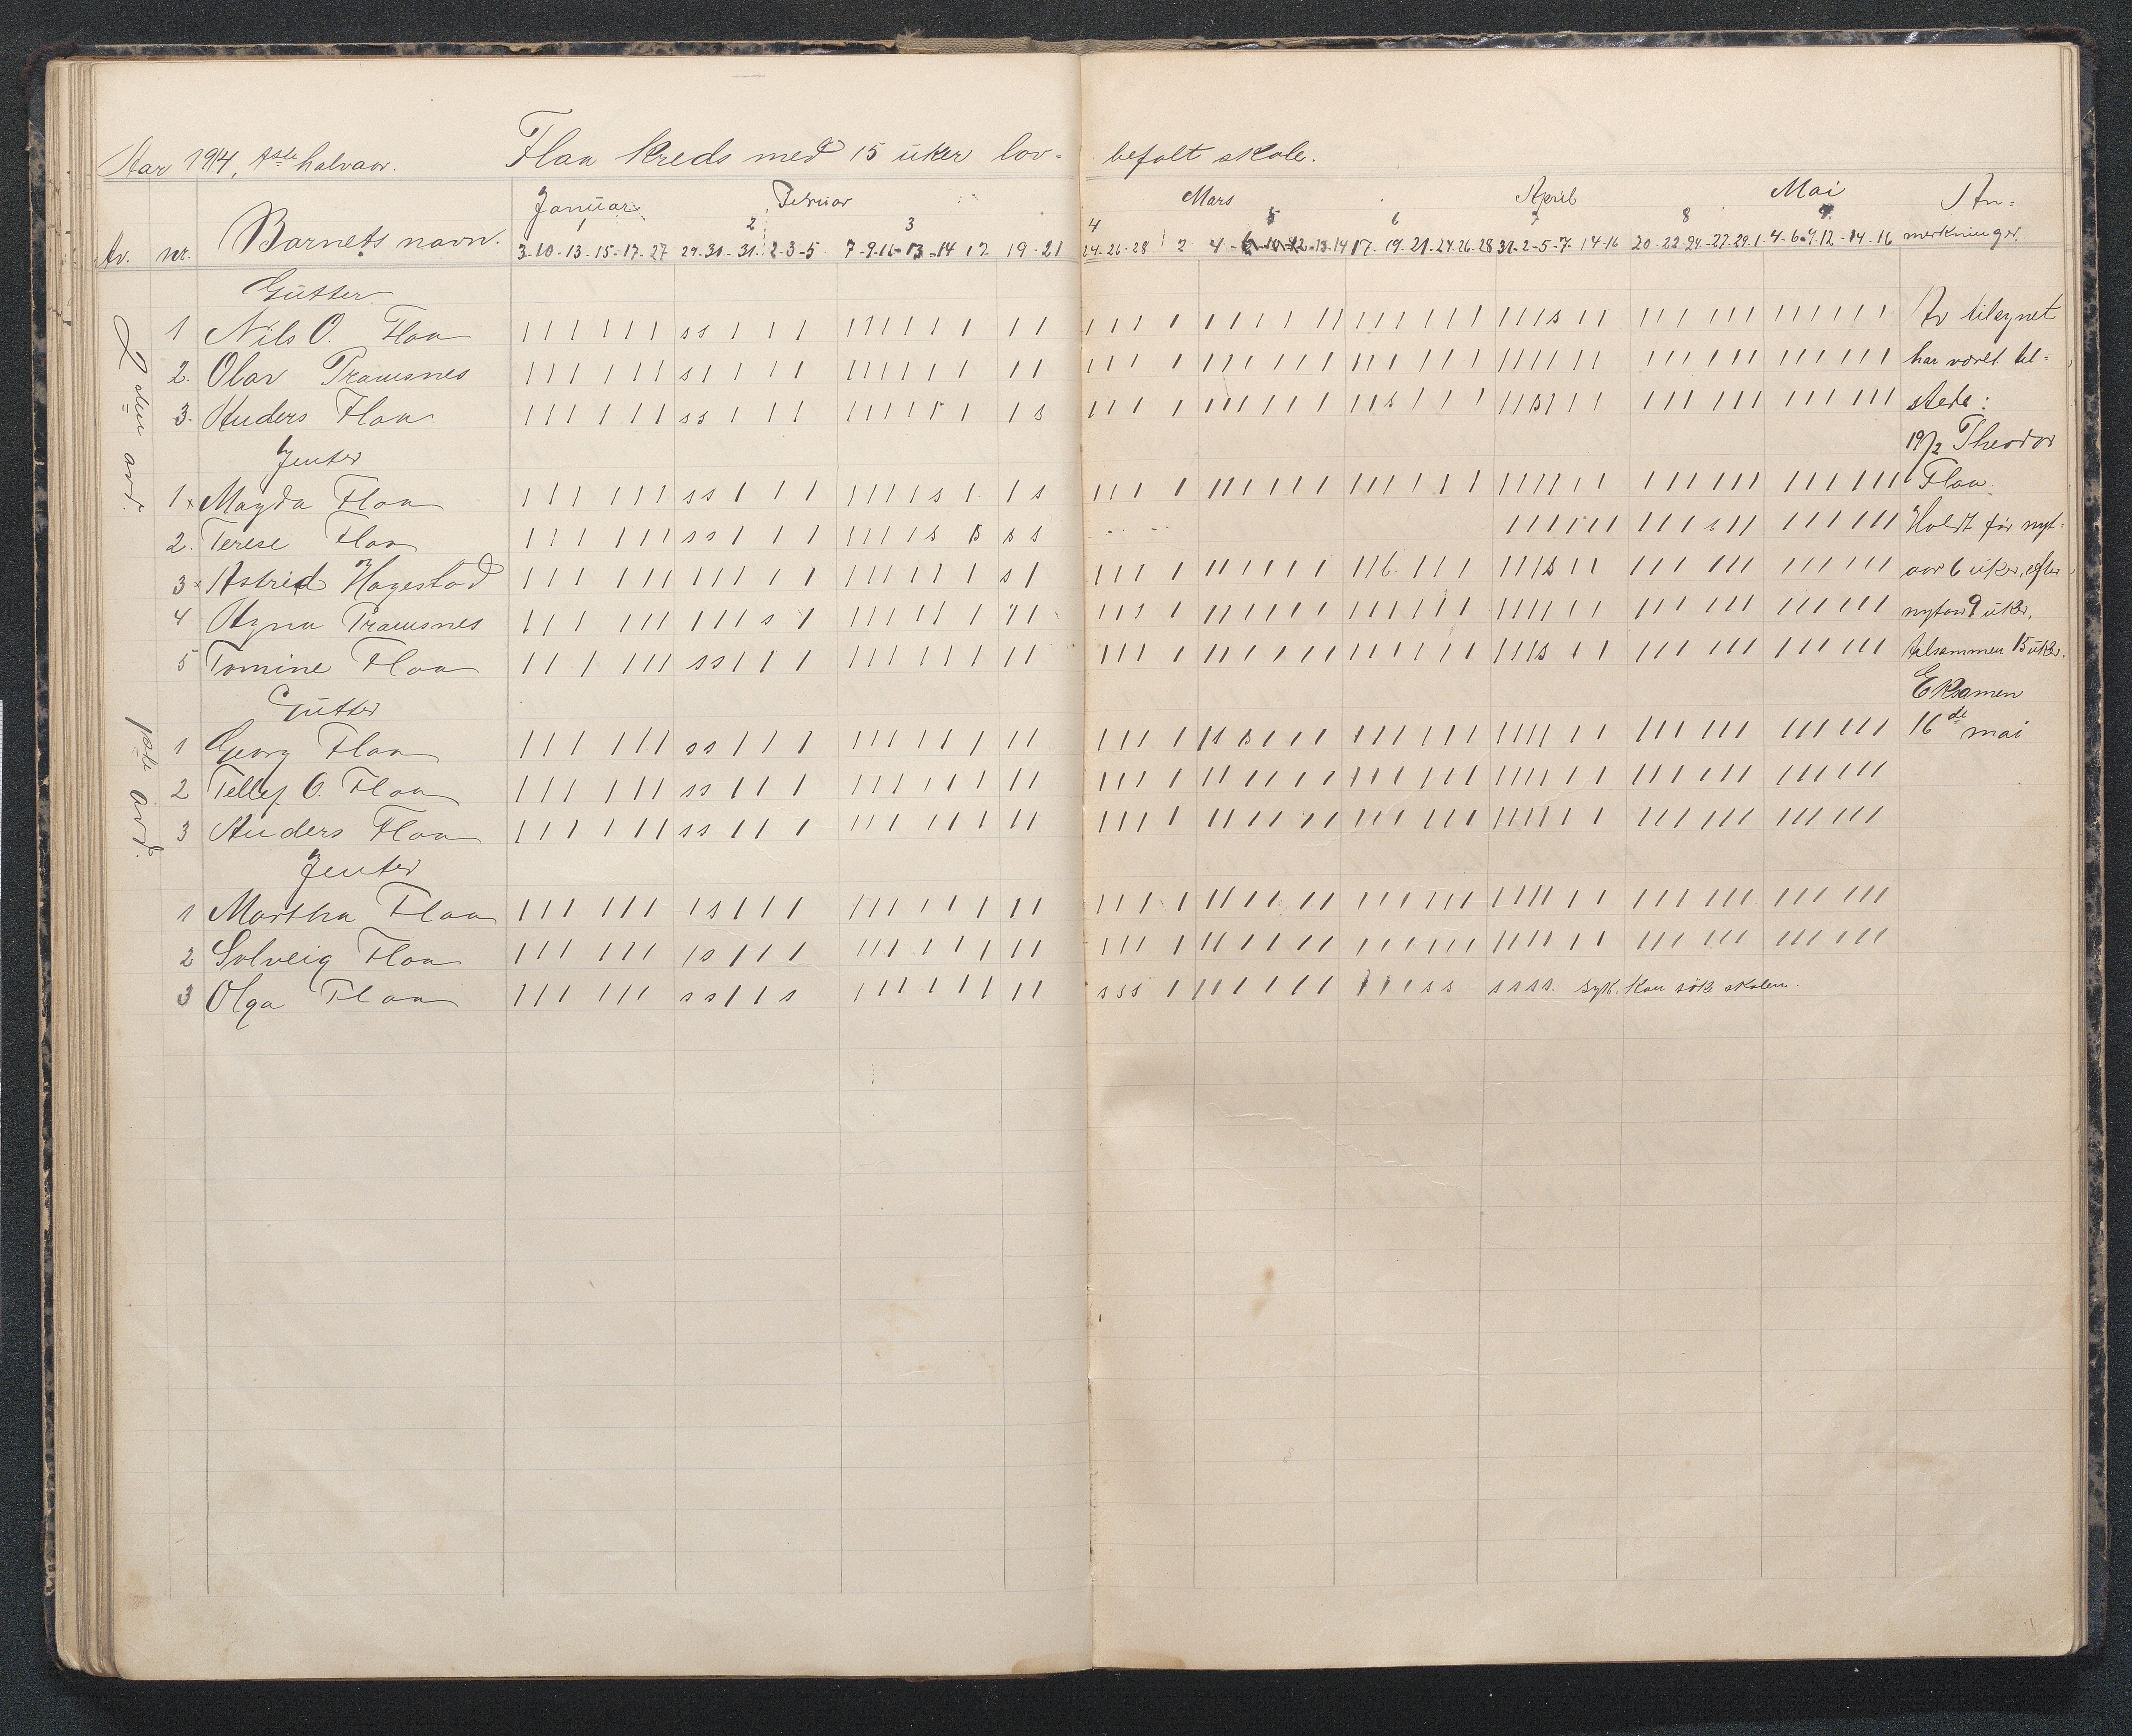 Aar 1914, 1ste halvaar. Flaa kreds med 15 uker lov- befalt skole.
Januar Februar Mars April Mai An-
1 2 3 4 5 6 7 8 9
Av. nr. Barnets navn. 3-10-13-15-17-27 29-30-31-2-3-5 7-9-10-13-14 17 19-21 24-26-28 2 4-6-10-12-13-14 17-19-21-24-26-28 31-2-5-7-14-16 20-22-24-27-29-1 4-6-9-12-14-16 merkninger.
Gutter
2den avd.
1 Nils O. Flaa Av tilsynet
2. Olav Tramsnes har været til-
3. Anders Flaa stede:
Jenter 19/2 Theodor
1x Magda Flaa Flaa.
2. Terese Flaa Holdt før nyt-
3x Astrid Hagestad aar 6 uker, efter
4 Agna Tramsnes nytaar 9 uker,
5 Tomine Flaa tilsammen 15 uker.
Gutter Eksamen
1ste avd.
1 Georg Flaa 16de mai
2 Tellef O. Flaa
3 Anders Flaa
Jenter
1 Martha Flaa
2 Solveig Flaa
3 Olga Flaa s s s s syk. Kan søke skolen.